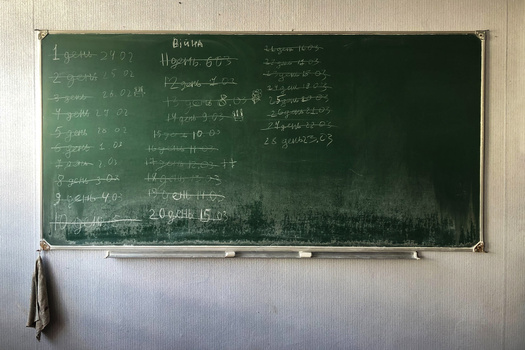 Війна
1 день 24.02
2 день 25.02
3 день 26.02
4 день 27.02
5 день 28.02
6 день 1.03
7 день 2.03
8 день 3.03
9 день 4.03
10 день
11 день 6.03
12 день 7.03
13 день 8.03
14 день 9.03 !!!
15 день 10.03
16 день 11.03
17 день 12.03
18 день 13
19 день 14.03
20 день 15.03
день 16.03
день
день 18.03
день 19.03
25 день 20.03
день 21.03
27 день 22.03
28 день 23.03